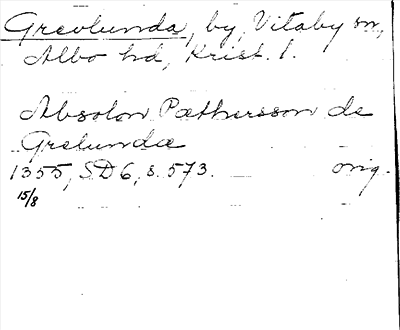 Grevlunda, by, Vitaby sn,
Albo hd, Krist. l.
Absolon Pæthersson de
Grelundæ
1355, SD 6, s. 573. orig.
15/8